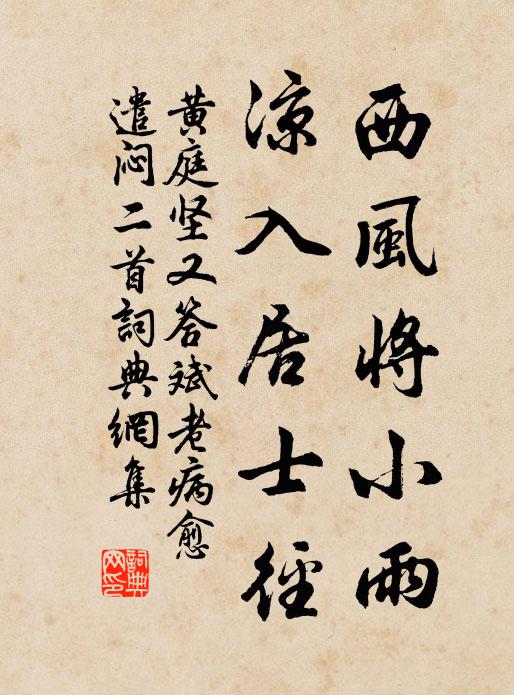 西風將小雨
凉入居士徑
黄庭坚又答斌老病愈
遣闷二首詞典網集
詞典
网印